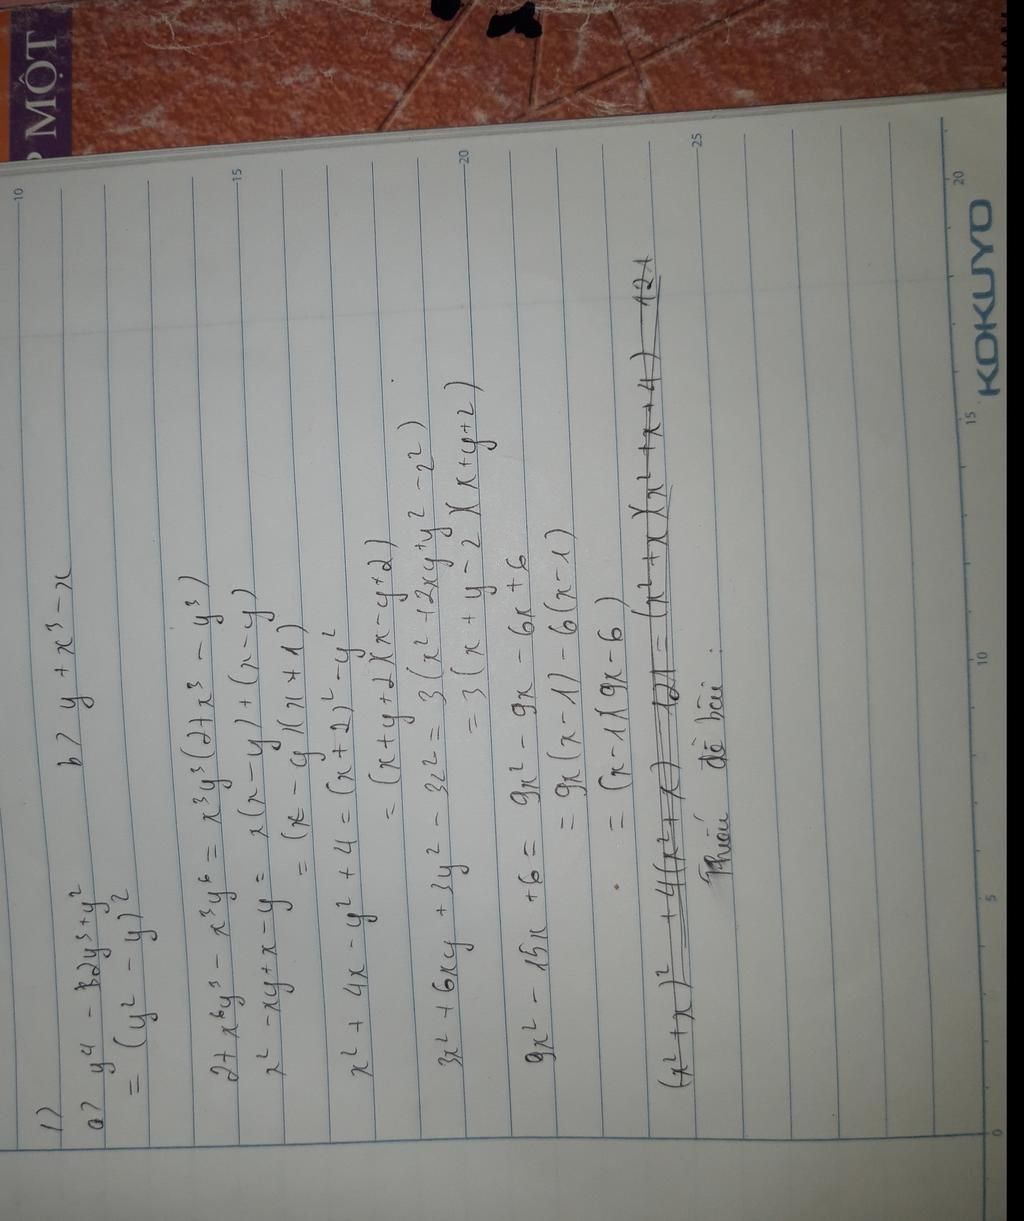 MỘT
10
1)
a) y⁴ - 2y³+y²
b) y + x³ - x
= (y² - y)²
15
27x⁶y³ - x³y⁶ = x³y³(27x³ - y³)
x² - xy + x - y = x(x - y) + (x - y)
= (x - y)(x + 1)
x² + 4x - y² + 4 = (x + 2)² - y²
= (x + y + 2)(x - y + 2)
20
3x² + 6xy + 3y² - 3z² = 3(x² + 2xy + y² - z²)
= 3(x + y - z)(x + y + z)
9x² - 15x + 6 = 9x² - 9x - 6x + 6
= 9x(x - 1) - 6(x - 1)
= (x - 1)(9x - 6)
25
(x² + x)² + 4(x² + x) - 12x = (x² + x)(x² + x + 4) - 12x
Thiếu đề bài.
0 5 10 15 20
KOKUYO